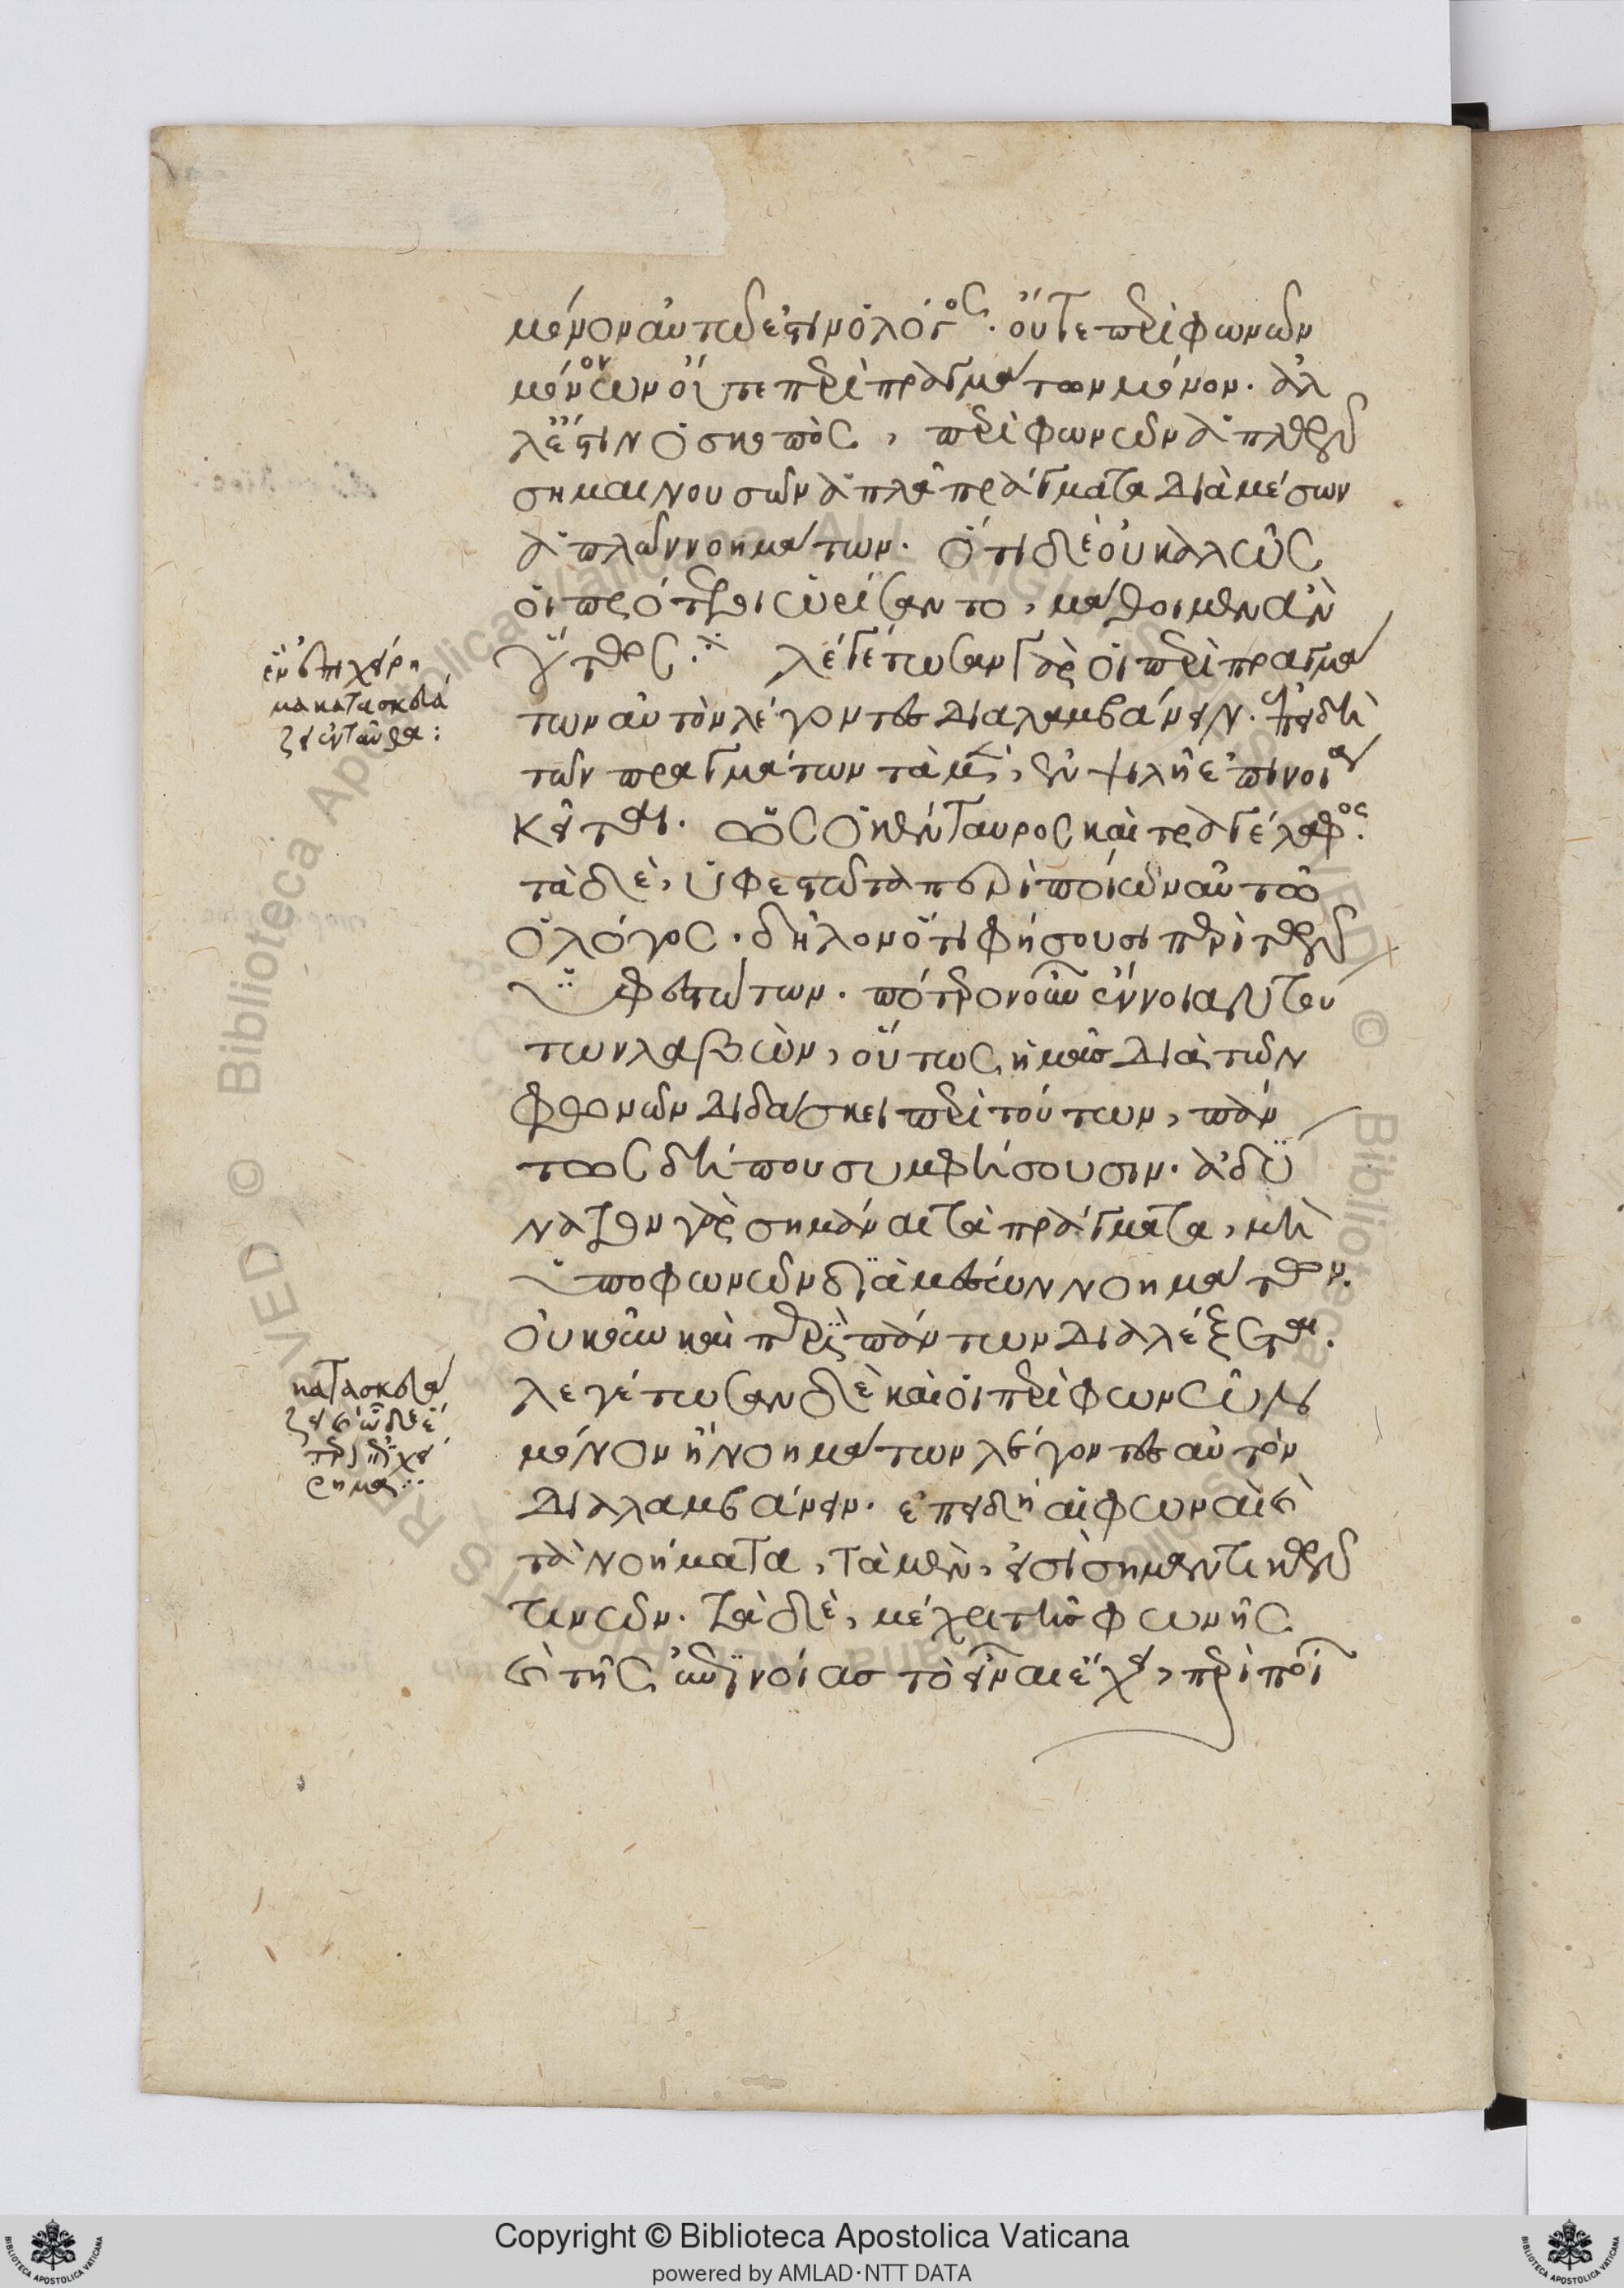 μόνον αὐτῶ ἐστιν ὁ λόγος· οὔτε περὶ φωνῶν
μόνον ὢν οὔτε περὶ πραγμάτων μόνον· ἀλ
λ' ἔστιν ὁ σκοπὸς, περὶ φωνῶν ἁπλῶν
σημαινουσῶν ἁπλᾶ πράγματα διὰ μέσων
ἁπλῶν νοημάτων· ὅτι δὲ οὐ καλῶς
οἱ πρότεροι ὡρίσαντο, μάθοιμεν ἂν
οὕτως ⁘ λεγέτωσαν γὰρ οἱ περὶ πραγμά
των αὐτὸν λέγοντες διαλαμβάνειν· ἐπειδὴ
τῶν πραγμάτων τὰ μὲν, ἐν ψιλῆ ἐπινοία
κεῖται· ὡς ὁ κένταυρος καὶ τραγέλαφος·
τὰ δὲ, ὑφεστῶτα περὶ ποίων αὐτῶ
ὁ λόγος· δῆλον ὅτι φήσουσι περὶ τῶν
ὑφεστώτων· πότερον οὖν ἔννοιαν τού
των λαβὼν, οὕτως ἡμᾶς διὰ τῶν
φθόνων διδάσκει περὶ τούτων, πάν
τως δήπου συμφήσουσιν· ἀδύ
νατον γὰρ σημᾶναι τὰ πράγματα, μὴ
ὑπὸ φωνῶν διὰ μέσων νοημάτων·
οὐκοῦν καὶ περὶ πάντων διαλέξεται·
λεγέτωσαν δὲ καὶ οἱ περὶ φωνῶν
μόνον ἢ νοημάτων λέγοντες αὐτὸν
διαλαμβάνειν· ἐπειδὴ αἱ φωναὶ καὶ
τὰ νοήματα, τὰ μὲν, εἰσὶ σημαντικὰ
τινῶν· τὰ δὲ, μέχρι τῆς φωνῆς
καὶ τῆς ἐπινοίας τὸ εἶναι ἔχει, περὶ ποί
ἓν ἐπιχείρη
μα κατασκευά
ζει ἐνταῦθα:
κατασκευά
ζει καὶ ὧδε ἕ
τερον ἐπιχεί
ρημα: